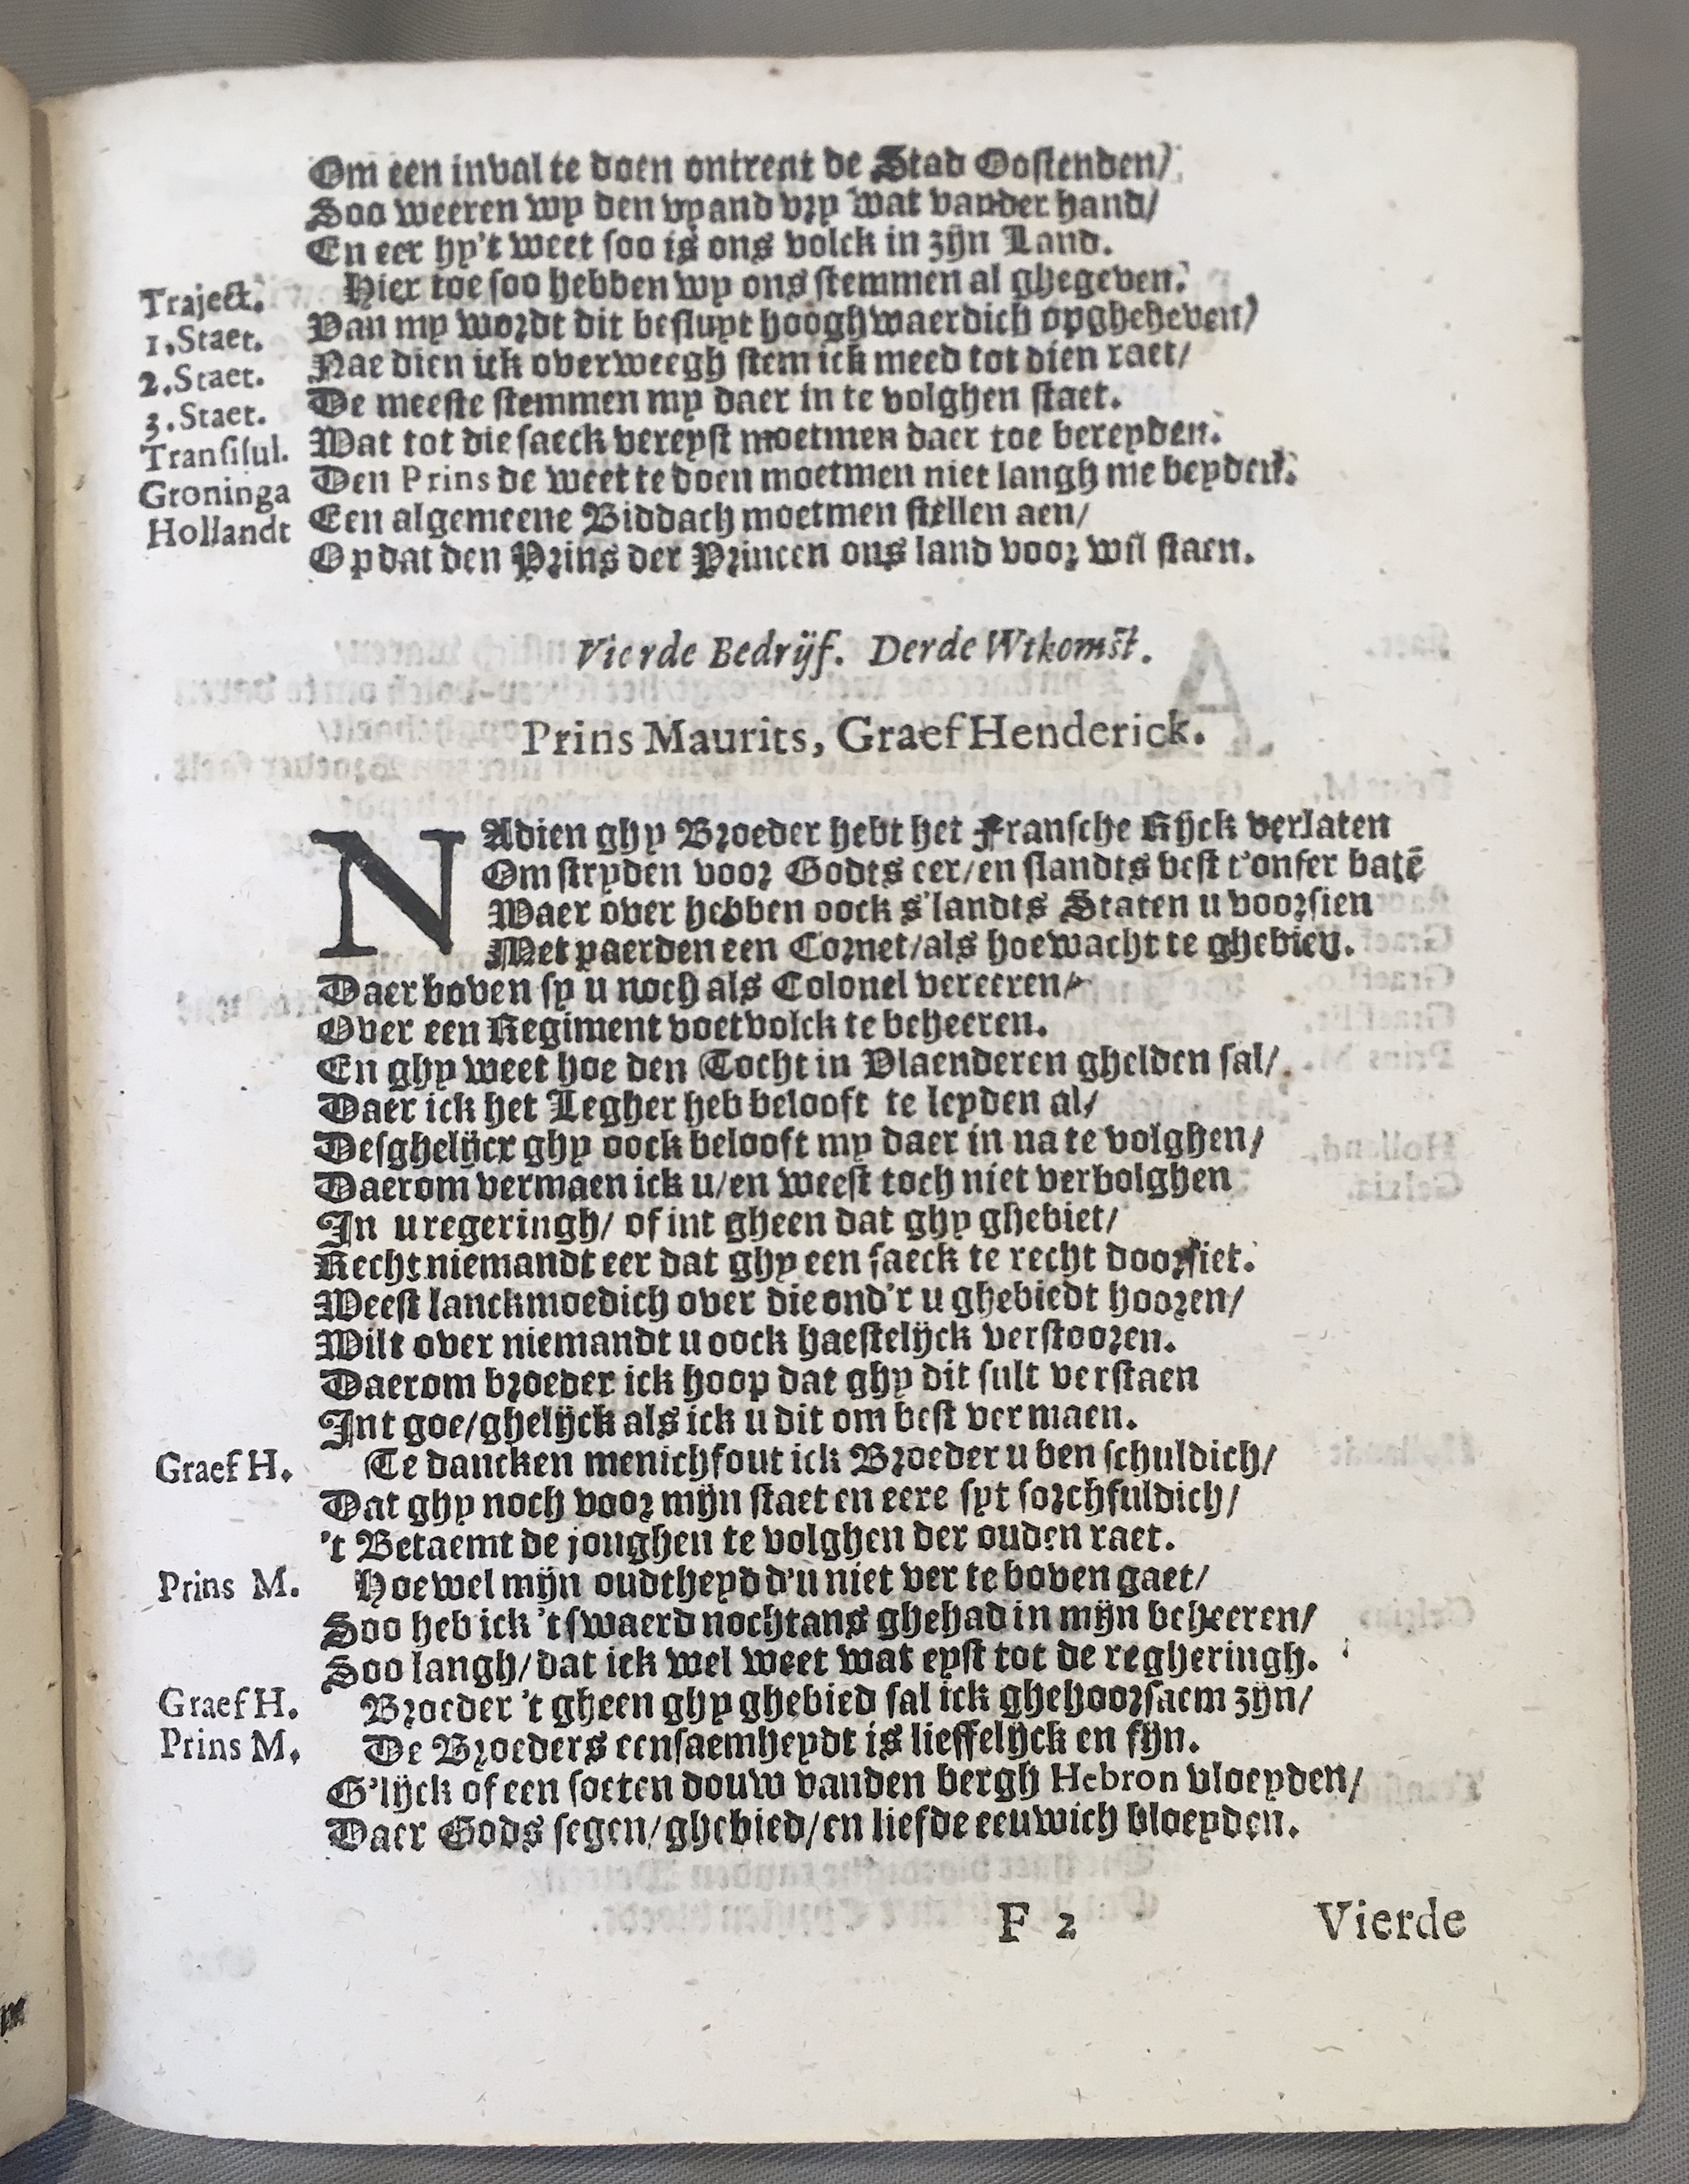 Om een inval te doen ontrent de Stad Oostenden/
Soo weeren wy den vyand vry wat vander hand/
En eer hy't weet soo is ons volck in zijn Land.
Traject. Hier toe soo hebben wy ons stemmen al ghegeven.
1. Staet. Van my wordt dit besluyt hooghwaerdich opgheheven/
2. Staet. Nae dien ick overweegh stem ick meed tot dien raet/
3. Staet. De meeste stemmen my daer in te volghen staet.
Transisul. Wat tot die saeck vereyst moetmen daer toe bereyden.
Groninga Den Prins de weet te doen moetmen niet langh me beyden.
Hollandt Een algemeene Biddach moetmen stellen aen/
Opdat den Prins der Princen ons land voor wil staen.
Vierde Bedrijf. Derde Wtkomst.
Prins Maurits, Graef Henderick.
NAdien ghy Broeder hebt het Fransche Rijck verlaten
Om stryden voor Godts eer/en slandts best t'onser batē
Waer over hebben oock s'landts Staten u voorsien
Met paerden een Cornet/als hoewacht te ghebien.
Daer boven sy u noch als Colonel vereeren/
Over een Regiment voetvolck te beheeren.
En ghy weet hoe den Tocht in Vlaenderen ghelden sal/
Daer ick het Legher heb belooft te leyden al/
Desghelijcx ghy oock belooft my daer in na te volghen/
Daerom vermaen ick u/en weest toch niet verbolghen
In u regeringh/ of int gheen dat ghy ghebiet/
Recht niemandt eer dat ghy een saeck te recht doorsiet.
Weest lanckmoedich over die ond'r u ghebiedt hooren/
Wilt over niemandt u oock haestelijck verstooren.
Daerom broeder ick hoop dat ghy dit sult verstaen
Int goe/ghelijck als ick u dit om best vermaen.
Graef H. Te dancken menichfout ick Broeder u ben schuldich/
Dat ghy noch voor mijn staet en eere syt sorchfuldich/
't Betaemt de jonghen te volghen der ouden raet.
Prins M. Hoewel mijn oudtheyd d'u niet ver te boven gaet/
Soo heb ick 't swaerd nochtans ghehad in mijn beheeren/
Soo langh/dat ick wel weet wat eyst tot de regheringh.
Graef H. Broeder 't gheen ghy ghebied sal ick ghehoorsaem zijn/
Prins M. De Broeders eensaemheydt is lieffelijck en fijn.
G'lijck of een soeten douw vanden bergh Hebron vloeyden/
Daer Gods segen/ghebied/en liefde eeuwich bloeyden.
F 2 Vierde